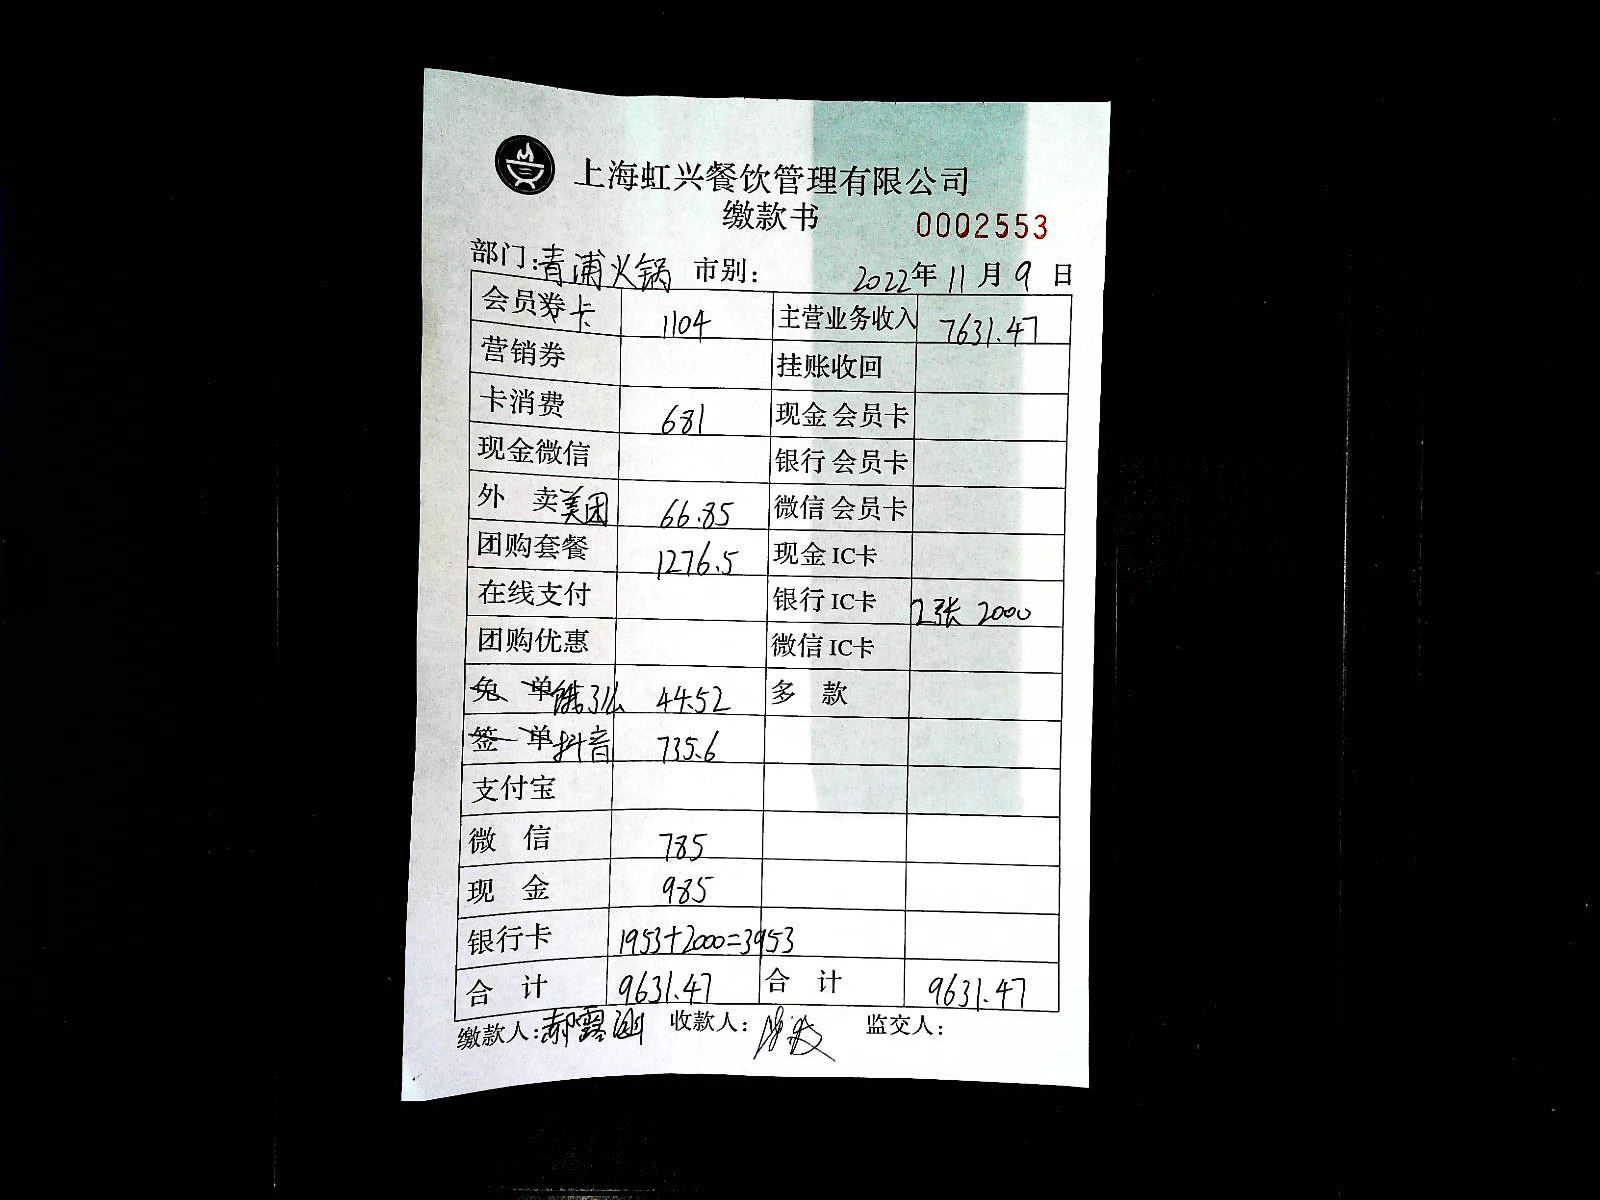 上海虹兴餐饮管理有限公司
缴款书 0002553
部门:青浦火锅 市别: 2022年11月9日
会员券卡 1104 主营业务收入 7631.47
营销券 挂账收回
卡消费 681 现金 会员卡
现金微信 银行 会员卡
外 卖美团 66.85 微信 会员卡
团购套餐 1276.5 现金 IC卡
在线支付 银行 IC卡 2张 2000
团购优惠 微信 IC卡
免 单 饿了么 44.52 多 款
签 单 抖音 735.6
支付宝
微 信 785
现 金 985
银行卡 1953+2000=3953
合 计 9631.47 合 计 9631.47
缴款人:郝露 收款人: 监交人: